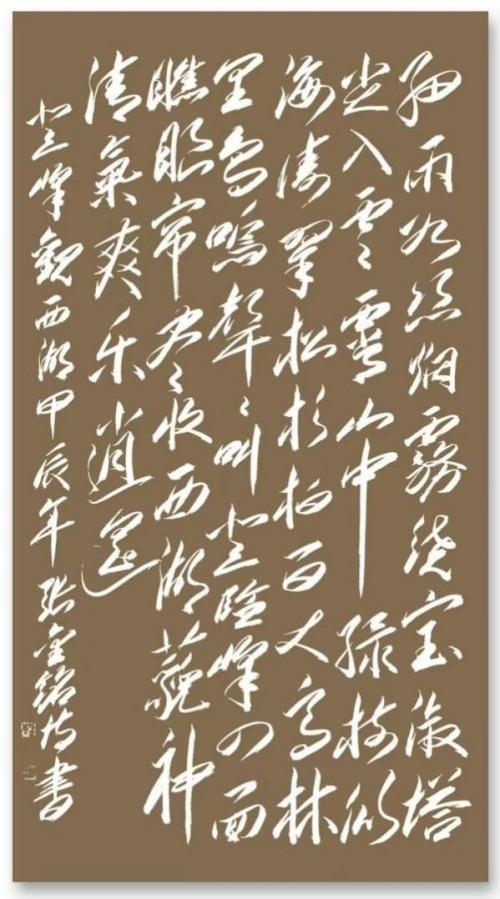 细雨如丝烟雾绕宝俶塔
尖入云霄山中绿树似
海涛翠松杉柏百丈高林
里鸟鸣声声叫登险峰四面
瞧眼帘尽收西湖藐神
清气爽乐逍遥
登峰观西湖甲辰年张金诗书